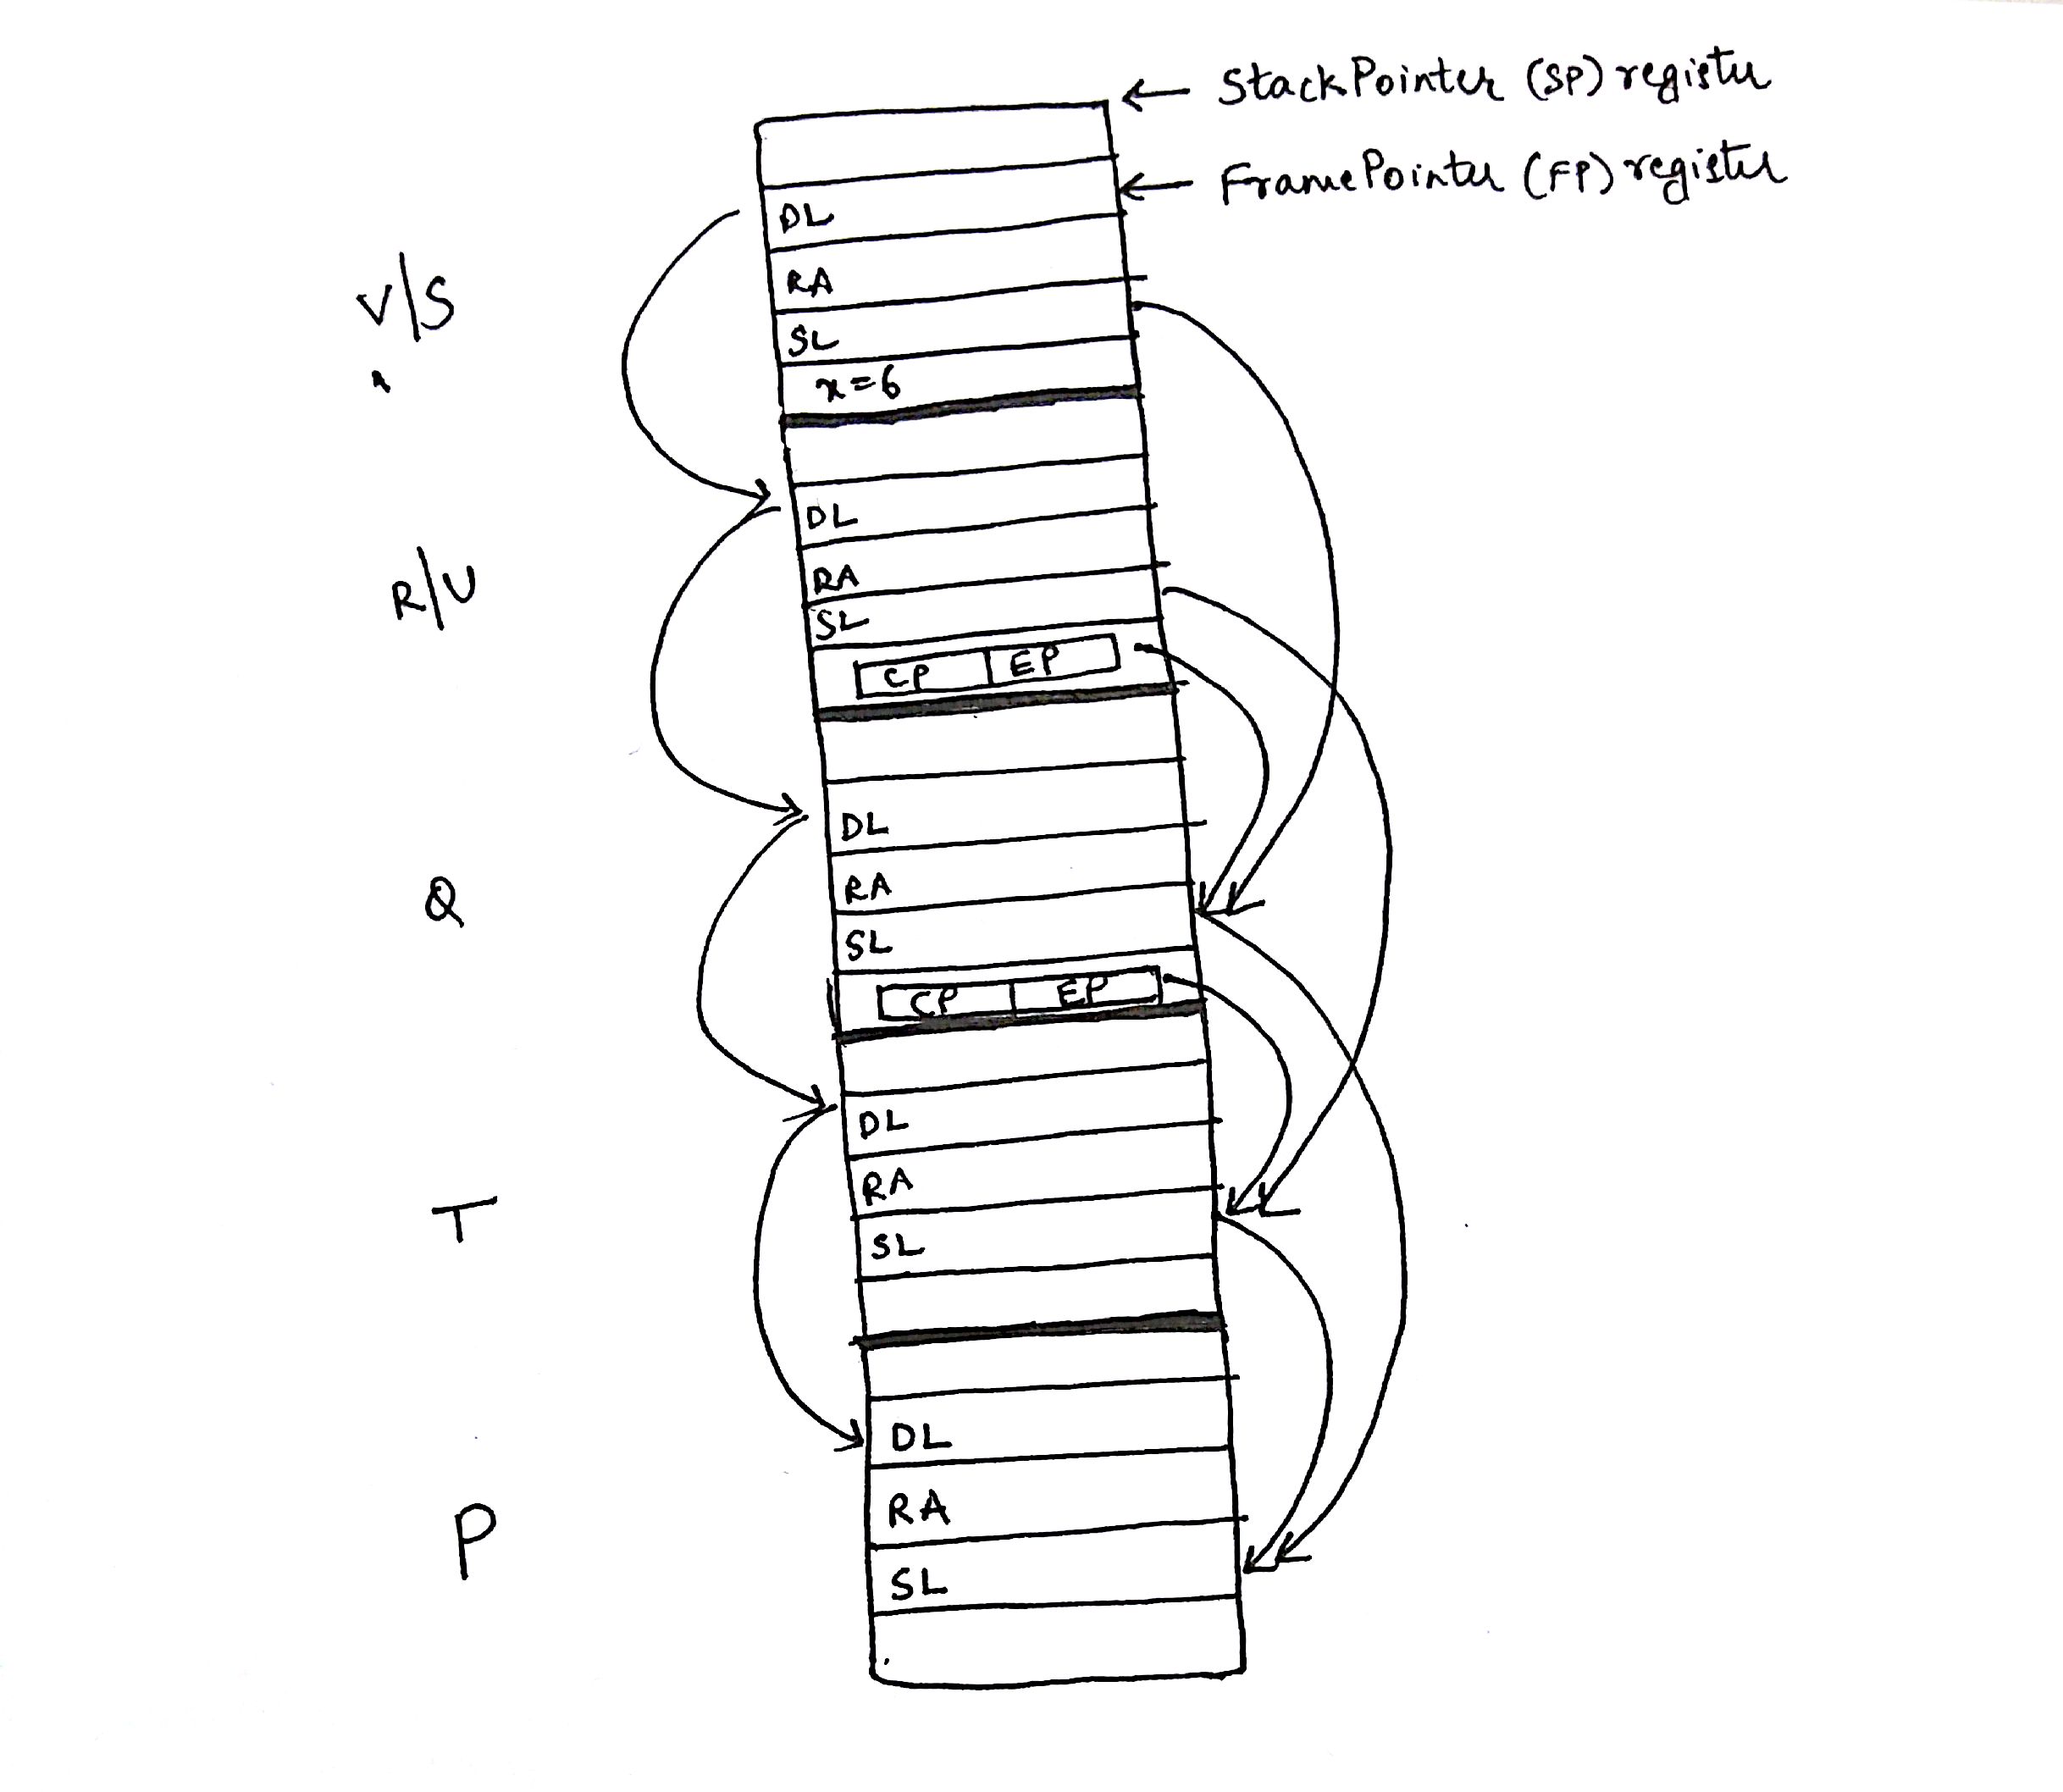 ← StackPointer (SP) register
← FramePointer (FP) register
DL
RA
V/S
SL
x=6
DL
RA
R/U
SL
CP EP
DL
RA
Q
SL
CP EP
DL
RA
T
SL
DL
RA
P
SL